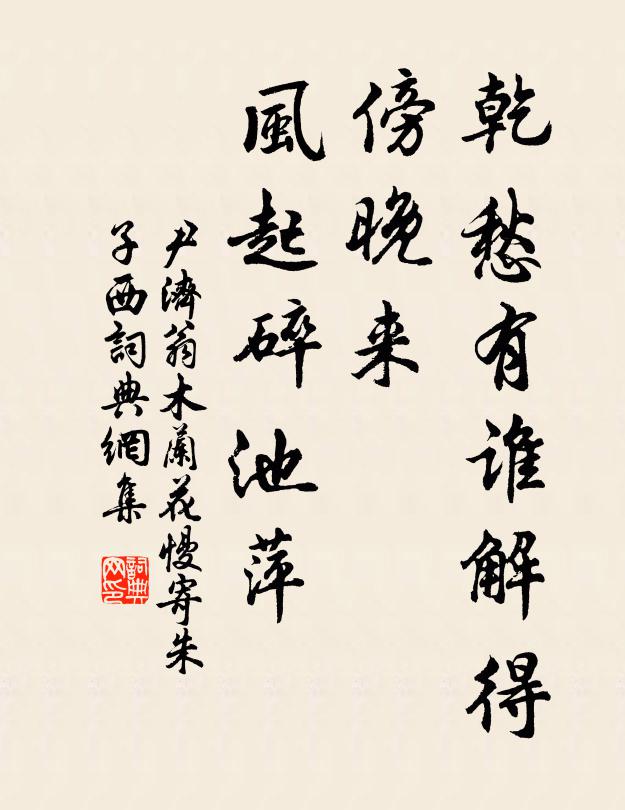 乾愁有誰解得
傍晚来
風起碎池萍
尹濟翁木蘭花慢寄朱
子西詞典網集
詞典
网印